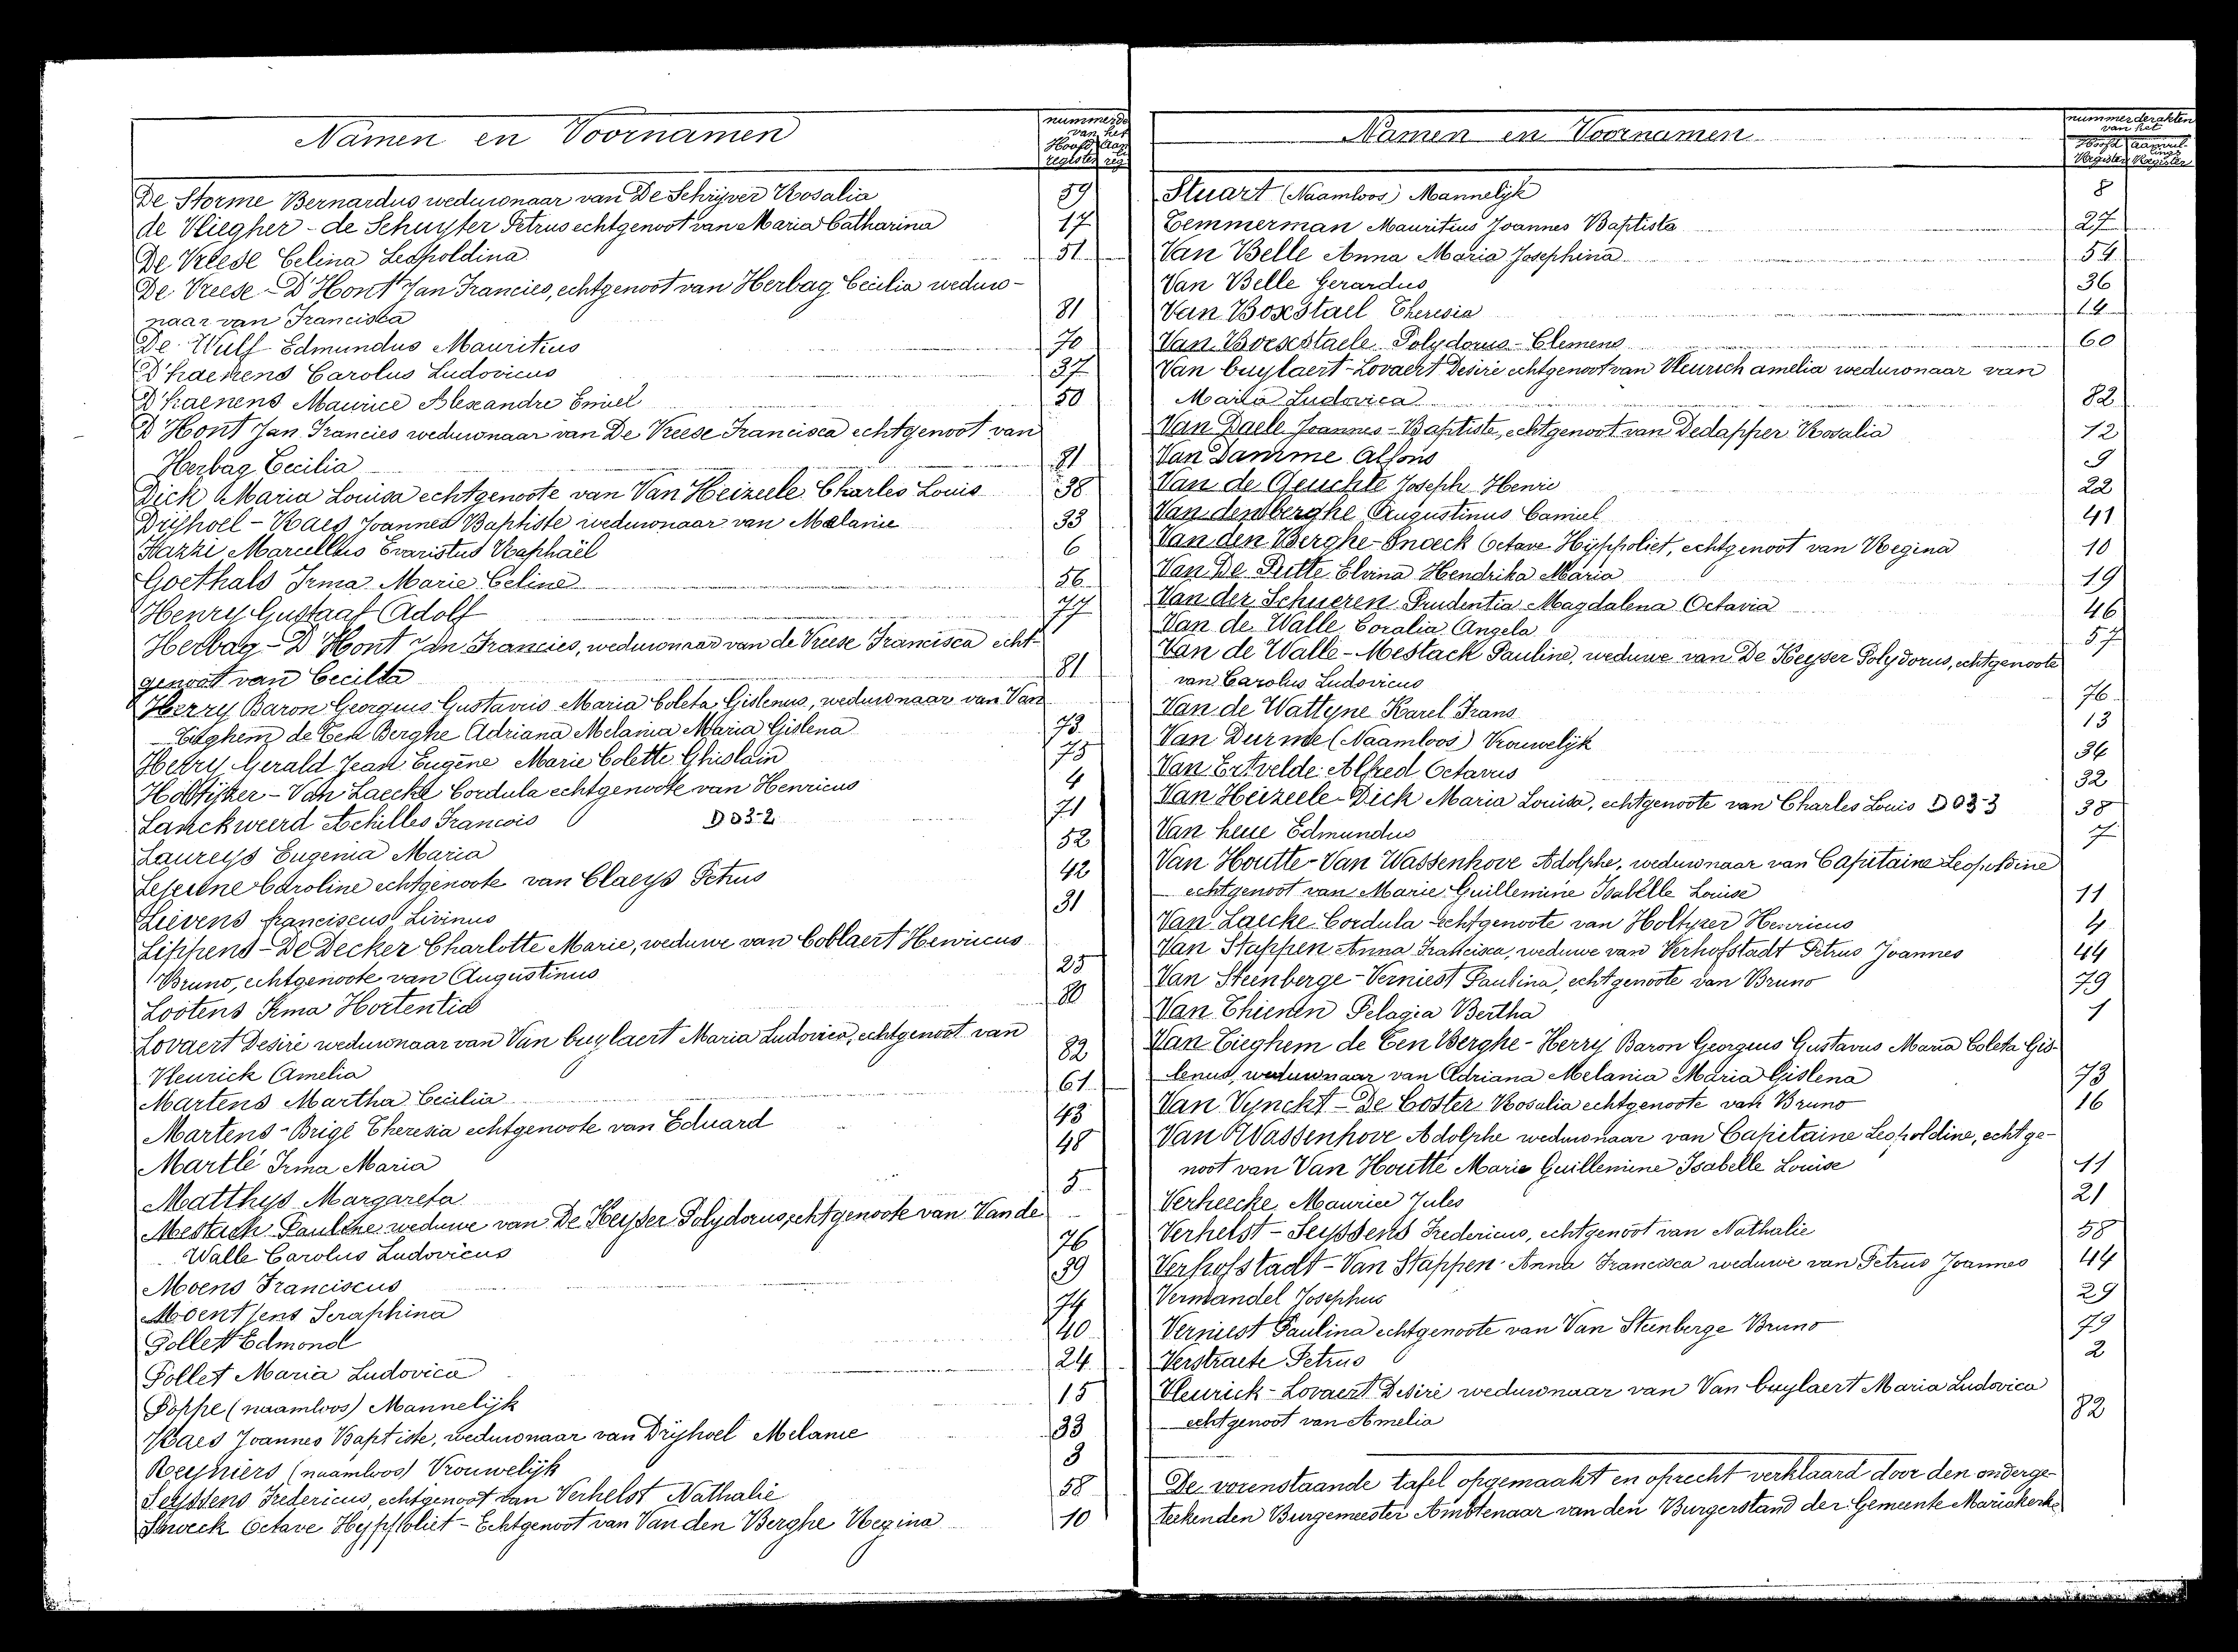 Namen en Voornamen
De Storme Bernardus weduwnaar van De Schrijver Rosalia 59
de Vliegher - de Schuyter Petrus echtgenoot van Maria Catharina 17
De Vreese Celina Leopoldina 51
De Vreese - D'Hont Jan Francies, echtgenoot van Herbag Cecilia weduw-
naar van Francisca 81
De Wulf Edmundus Mauritius 70
D'haenens Carolus Ludovicus 37
D'haenens Maurice Alexandre Emiel 50
D'Hont Jan Francies weduwnaar van De Vreese Francisca echtgenoot van
Herbag Cecilia 81
Dick Maria Louisa echtgenoote van Van Heizeele Charles Louis 38
Drijhoel - Raes Joannes Baptiste weduwnaar van Melanie 33
Hazzi Marcellus Evaristus Raphaël 6
Goethals Irma Marie Celine 56
Henry Gustaaf Adolf 77
Herbag - D'Hont Jan Francies, weduwnaar van de Vreese Francisca echt-
genoot van Cecilia 81
Herry Baron Georgius Gustavus Maria Coleta Gislenus, weduwnaar van Van
Tieghem de Ten Berghe Adriana Melania Maria Gislena 73
Herry Gerald Jean Eugène Marie Colette Ghislain 75
Holtijzer - Van Laecke Cordula echtgenoote van Henricus 4
Lanckweerd Achilles Francois D 03-2 71
Laureys Eugenia Maria 52
Caroline echtgenoote van Claeys Petrus 42
Lievens franciscus Livinus 31
Lippens - De Decker Charlotte Marie, weduwe van Coblaert Henricus
Bruno, echtgenoote van Augustinus 25
Lootens Irma Hortentia 80
Lovaert Desiré weduwnaar van Van buylaert Maria Ludovica, echtgenoot van
Vleurick Amelia 82
Martens Martha Cecilia 61
Martens - Brigé Theresia echtgenoote van Eduard 43
Martlé Irma Maria 48
Matthys Margareta 5
Mestach Pauline weduwe van De Keyser Polydorus, echtgenoote van Van de
Walle Carolus Ludovicus 76
Moens Franciscus 39
Moentjens Seraphina 74
Pollet Edmond 40
Pollet Maria Ludovica 24
Poppe (naamloos) Mannelijk 15
Raes Joannes Baptiste, weduwnaar van Drijhoel Melanie 33
Reyniers (naamloos) Vrouwelijk 3
Seyssens Fredericus, echtgenoot van Verhelst Nathalie 58
Snoeck Octave Hyppoliet - Echtgenoot van Van den Berghe Regina 10
Namen en Voornamen
nummer der akten
van het
Stuart (Naamloos) Mannelijk 8
Temmerman Mauritius Joannes Baptista 27
Van Belle Anna Maria Josephina 54
Van Belle Gerardus 36
Van Boxstael Theresia 14
Van Boexstaele Polydorus - Clemens 60
Van buylaert - Lovaert Desiré echtgenoot van Vleurich amelia weduwnaar van
Maria Ludovica 82
Van Daele Joannes - Baptiste, echtgenoot van Dedapper Rosalia 12
Van Damme Alfons 9
Van de Geuchte Joseph Henri 22
Van den berghe Augustinus Camiel 41
Van den Berghe - Snoeck Octave Hyppoliet, echtgenoot van Regina 10
Van De Putte Elvina Hendrika Maria 19
Van der Schueren Prudentia Magdalena Octavia 46
Van de Walle Coralia Angela 57
Van de Walle - Mestack Pauline, weduwe van De Keyser Polydorus, echtgenoote
van Carolus Ludovicus 76
Van de Wattyne Karel Frans 13
Van Durme (Naamloos) Vrouwelijk 34
Van Ertvelde Alfred Octavus 32
Van Heizeele - Dick Maria Louisa, echtgenoote van Charles Louis D 03 3 38
Van heue Edmundus 7
Van Houtte - Van Wassenhove Adolphe, weduwnaar van Capitaine Leopoldine
echtgenoot van Marie Guillemine Isabelle Louise 11
Van Laecke Cordula echtgenoote van Holtyzer Henricus 4
Van Stappen Anna Francisca, weduwe van Verhofstadt Petrus Joannes 44
Van Steinberge - Verniest Paulina, echtgenoote van Bruno 79
Van Thienen Pelagia Bertha 1
Van Tieghem de Ten Berghe - Herry Baron Georgius Gustavus Maria Coleta Gis-
lenus, weduwnaar van Adriana Melania Maria Gislena 73
Van Vynckt - De Coster Rosalia echtgenoote van Bruno 16
Van Wassenhove Adolphe weduwnaar van Capitaine Leopoldine, echtge-
noot van Van Houtte Marie Guillemine Isabelle Louise 11
Verheecke Maurice Jules 21
Verhelst - Seyssens Fredericus, echtgenoot van Nathalie 58
Verhofstadt - Van Stappen Anna Francisca weduwe van Petrus Joannes 44
Vermandel Josephus 29
Verniest Paulina echtgenoote van Van Steinberge Bruno 79
Verstraete Petrus 2
Vleurick - Lovaert Desiré weduwnaar van Van buylaert Maria Ludovica
echtgenoot van Amelia 82
De vorenstaande tafel opgemaakt en oprecht verklaard door den onderge-
teekenden Burgemeester Ambtenaar van den Burgerstand der Gemeente Mariakerke